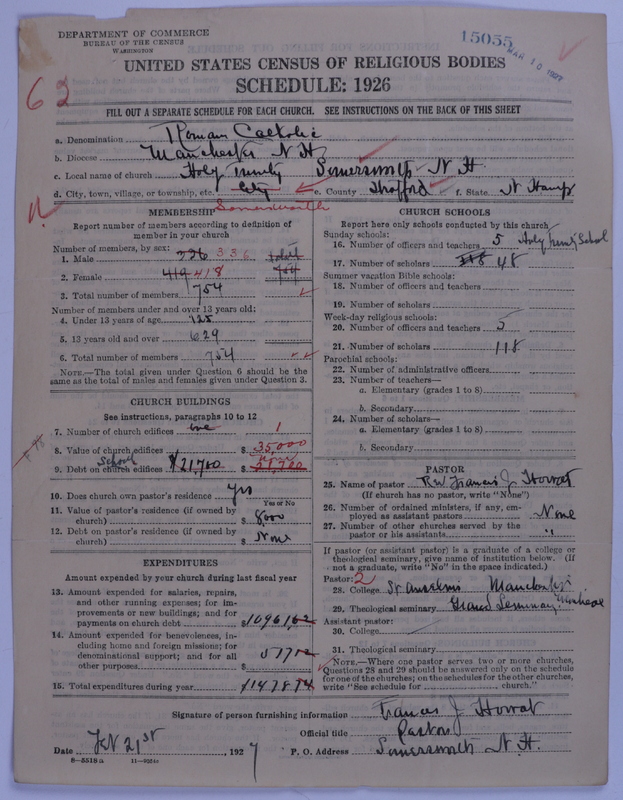 DEPARTMENT OF COMMERCE
BUREAU OF THE CENSUS
WASHINGTON
15055
MAR 10 1927
UNITED STATES CENSUS OF RELIGIOUS BODIES
SCHEDULE: 1926
62
FILL OUT A SEPARATE SCHEDULE FOR EACH CHURCH. SEE INSTRUCTIONS ON THE BACK OF THIS SHEET
a. Denomination Roman Catholic
b. Diocese Manchester N. H.
c. Local name of church Holy Trinity Somersworth N. H.
d. City, town, village, or township, etc. City e. County Strafford f. State N Hamp
Somersworth
MEMBERSHIP
Report number of members according to definition of
member in your church
Number of members, by sex:
1. Male 336 336 total
2. Female 419 418 754
3. Total number of members 754
Number of members under and over 13 years old:
4. Under 13 years of age 125
5. 13 years old and over 629
6. Total number of members 754
NOTE.—The total given under Question 6 should be the
same as the total of males and females given under Question 3.
CHURCH BUILDINGS
See instructions, paragraphs 10 to 12
7. Number of church edifices one 1
8. Value of church edifices $ 35000
School None
9. Debt on church edifices $21,700 $ 21,700
10. Does church own pastor's residence yes
Yes or No
11. Value of pastor's residence (if owned by
church) $ 8000
12. Debt on pastor's residence (if owned by
church) $ None
EXPENDITURES
Amount expended by your church during last fiscal year
13. Amount expended for salaries, repairs,
and other running expenses; for im-
provements or new buildings; and for
payments on church debt $10961.62
14. Amount expended for benevolences, in-
cluding home and foreign missions; for
denominational support; and for all
other purposes $
15. Total expenditures during year
CHURCH SCHOOLS
Report here only schools conducted by this church
Sunday schools:
16. Number of officers and teachers 5 Holy Trinity School
17. Number of scholars 118 48
Summer vacation Bible schools:
18. Number of officers and teachers
19. Number of scholars
Week-day religious schools:
20. Number of officers and teachers 5
21. Number of scholars 118
Parochial schools:
22. Number of administrative officers
23. Number of teachers—
a. Elementary (grades 1 to 8)
b. Secondary
24. Number of scholars—
a. Elementary (grades 1 to 8)
b. Secondary
PASTOR
25. Name of pastor Rev Francis J
(If church has no pastor, write "None")
26. Number of ordained ministers, if any, em-
ployed as assistant pastors None
27. Number of other churches served by the
pastor or his assistants "
If pastor (or assistant pastor) is a graduate of a college or
theological seminary, give name of institution below. (If
not a graduate, write "No" in the space indicated.)
Pastor: 2
28. College St Anselms Manchester
29. Theological seminary Grand Seminary Montreal
Assistant pastor:
30. College
31. Theological seminary
NOTE.—Where one pastor serves two or more churches,
Questions 28 and 29 should be answered only on the schedule
for one of the churches; on the schedules for the other churches,
write "See schedule for church."
Signature of person furnishing information Francis J
Official title Pastor
Date Feb 21st 1927 P. O. Address Somersworth N. H.
8—5518a 11—9264